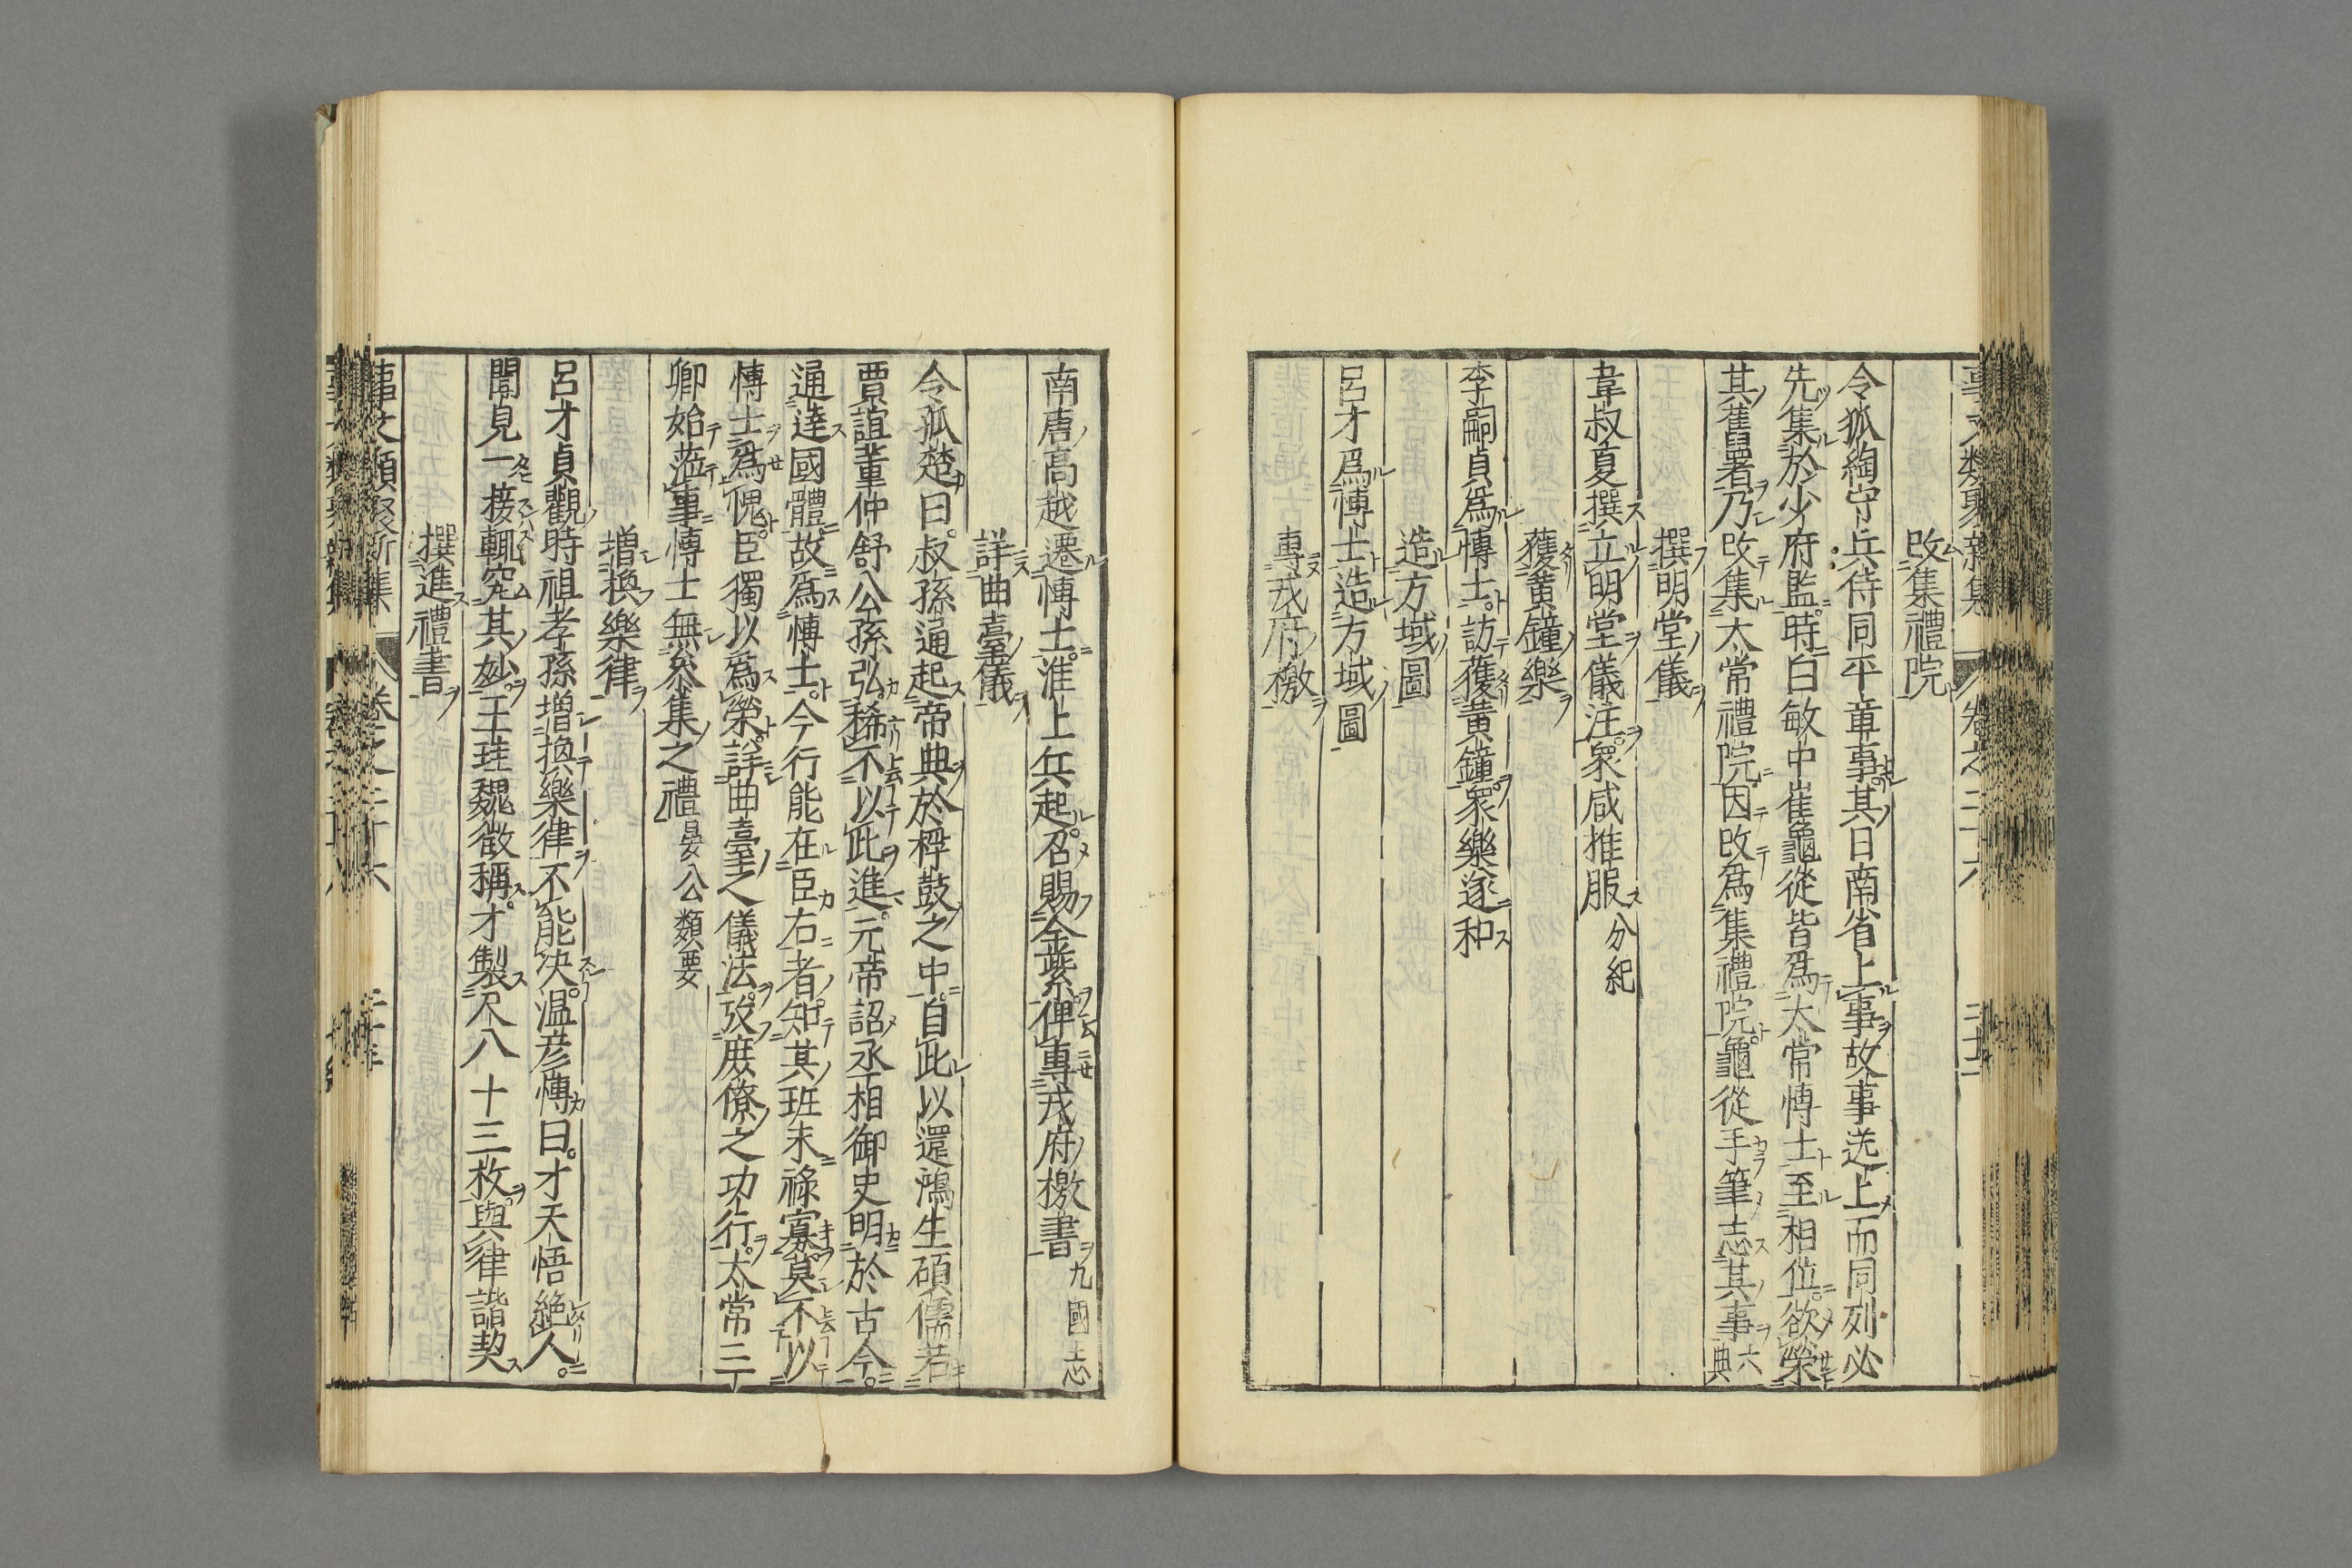 事文類聚新集 卷之二十六
改集禮院
令狐綯守兵侍同平章事其日南省上事故事送上而同列必
先集於少府監時白敏中崔龜從皆爲太常博士至相位欲榮
其舊署乃改集太常禮院因改爲集禮院龜從手筆志其事六典
撰明堂儀
韋叔夏撰立明堂儀注衆咸推服分紀
獲黃鐘樂
李嗣貞爲博士訪獲黃鐘衆樂遂和
造方域圖
呂才爲博士造方域圖
專戎府檄
南唐高越遷博士淮上兵起召賜金紫俾專戎府檄書九國志
詳曲臺儀
令狐楚曰叔孫通起帝典於桴鼓之中自此以還鴻生碩儒若
賈誼董仲舒公孫弘稀不以此進元帝詔丞相御史明於古今
通達國體故爲博士今行能在臣右者知其班末祿寡莫不以
博士爲傀臣獨以爲榮詳曲臺之儀法攷庶僚之功行太常三
卿始蒞事博士無參集之禮晏公類要
增換樂律
呂才貞觀時祖孝孫增換樂律不能決溫彥博曰才天悟絕人
聞見一接輒究其妙王珪魏徵稱才製尺八十三枚與律諧契
撰進禮書
事文類聚新集 卷之二十六